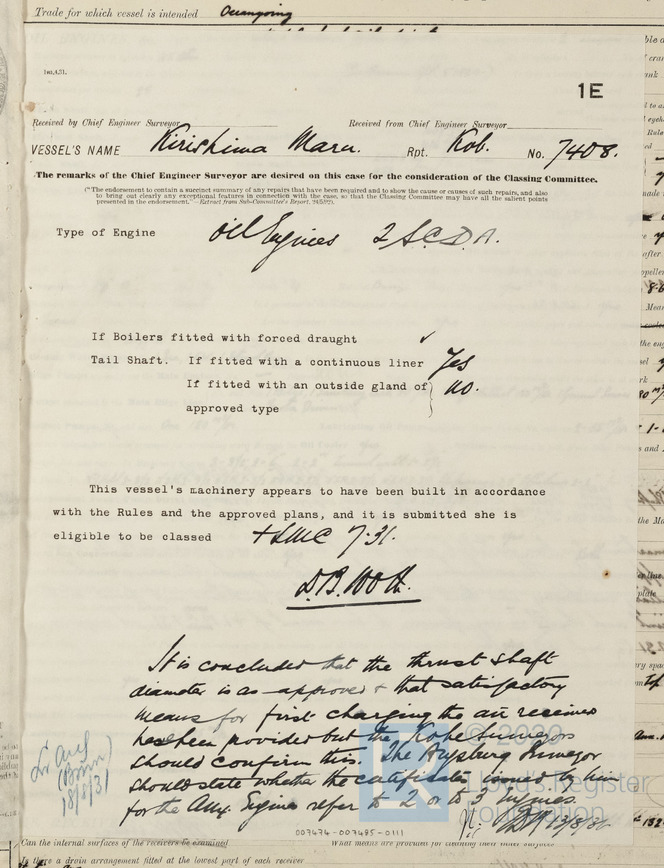 Trade for which vessel is intended Oceangoing
1m,4,31.
1E
Received by Chief Engineer Surveyor Received from Chief Engineer Surveyor
VESSEL'S NAME Kirishima Maru. Rpt. Kob. No. 7408.
The remarks of the Chief Engineer Surveyor are desired on this case for the consideration of the Classing Committee.
("The endorsement to contain a succinct summary of any repairs that have been required and to show the cause or causes of such repairs, and also
to bring out clearly any exceptional features in connection with the case, so that the Classing Committee may have all the salient points
presented in the endorsement."—Extract from Sub-Committee's Report,
Type of Engine Oil Engines 2 S.C.D.A.
If Boilers fitted with forced draught ✓
Tail Shaft. If fitted with a continuous liner Yes
If fitted with an outside gland of} no.
approved type
This vessel's machinery appears to have been built in accordance
with the Rules and the approved plans, and it is submitted she is
eligible to be classed +LMC 7:31.
It is concluded that the thrust shaft
diameter is as approved + that satisfactory
means for first charging the air receivers
has been provided but the Kobe Surveyors
should confirm this. The Augsburg Surveyor
should state whether the certificates issued by him
for the Aux. Engines refer to 2 or to 3 engines.
13/8/31
18/8/31
© 2020
Lloyd's Register
Foundation
007474-007495-0111
Can the internal surfaces of the receivers be examined What means are provided for cleaning their inner surfaces
Is there a drain arrangement fitted at the lowest part of each receiver